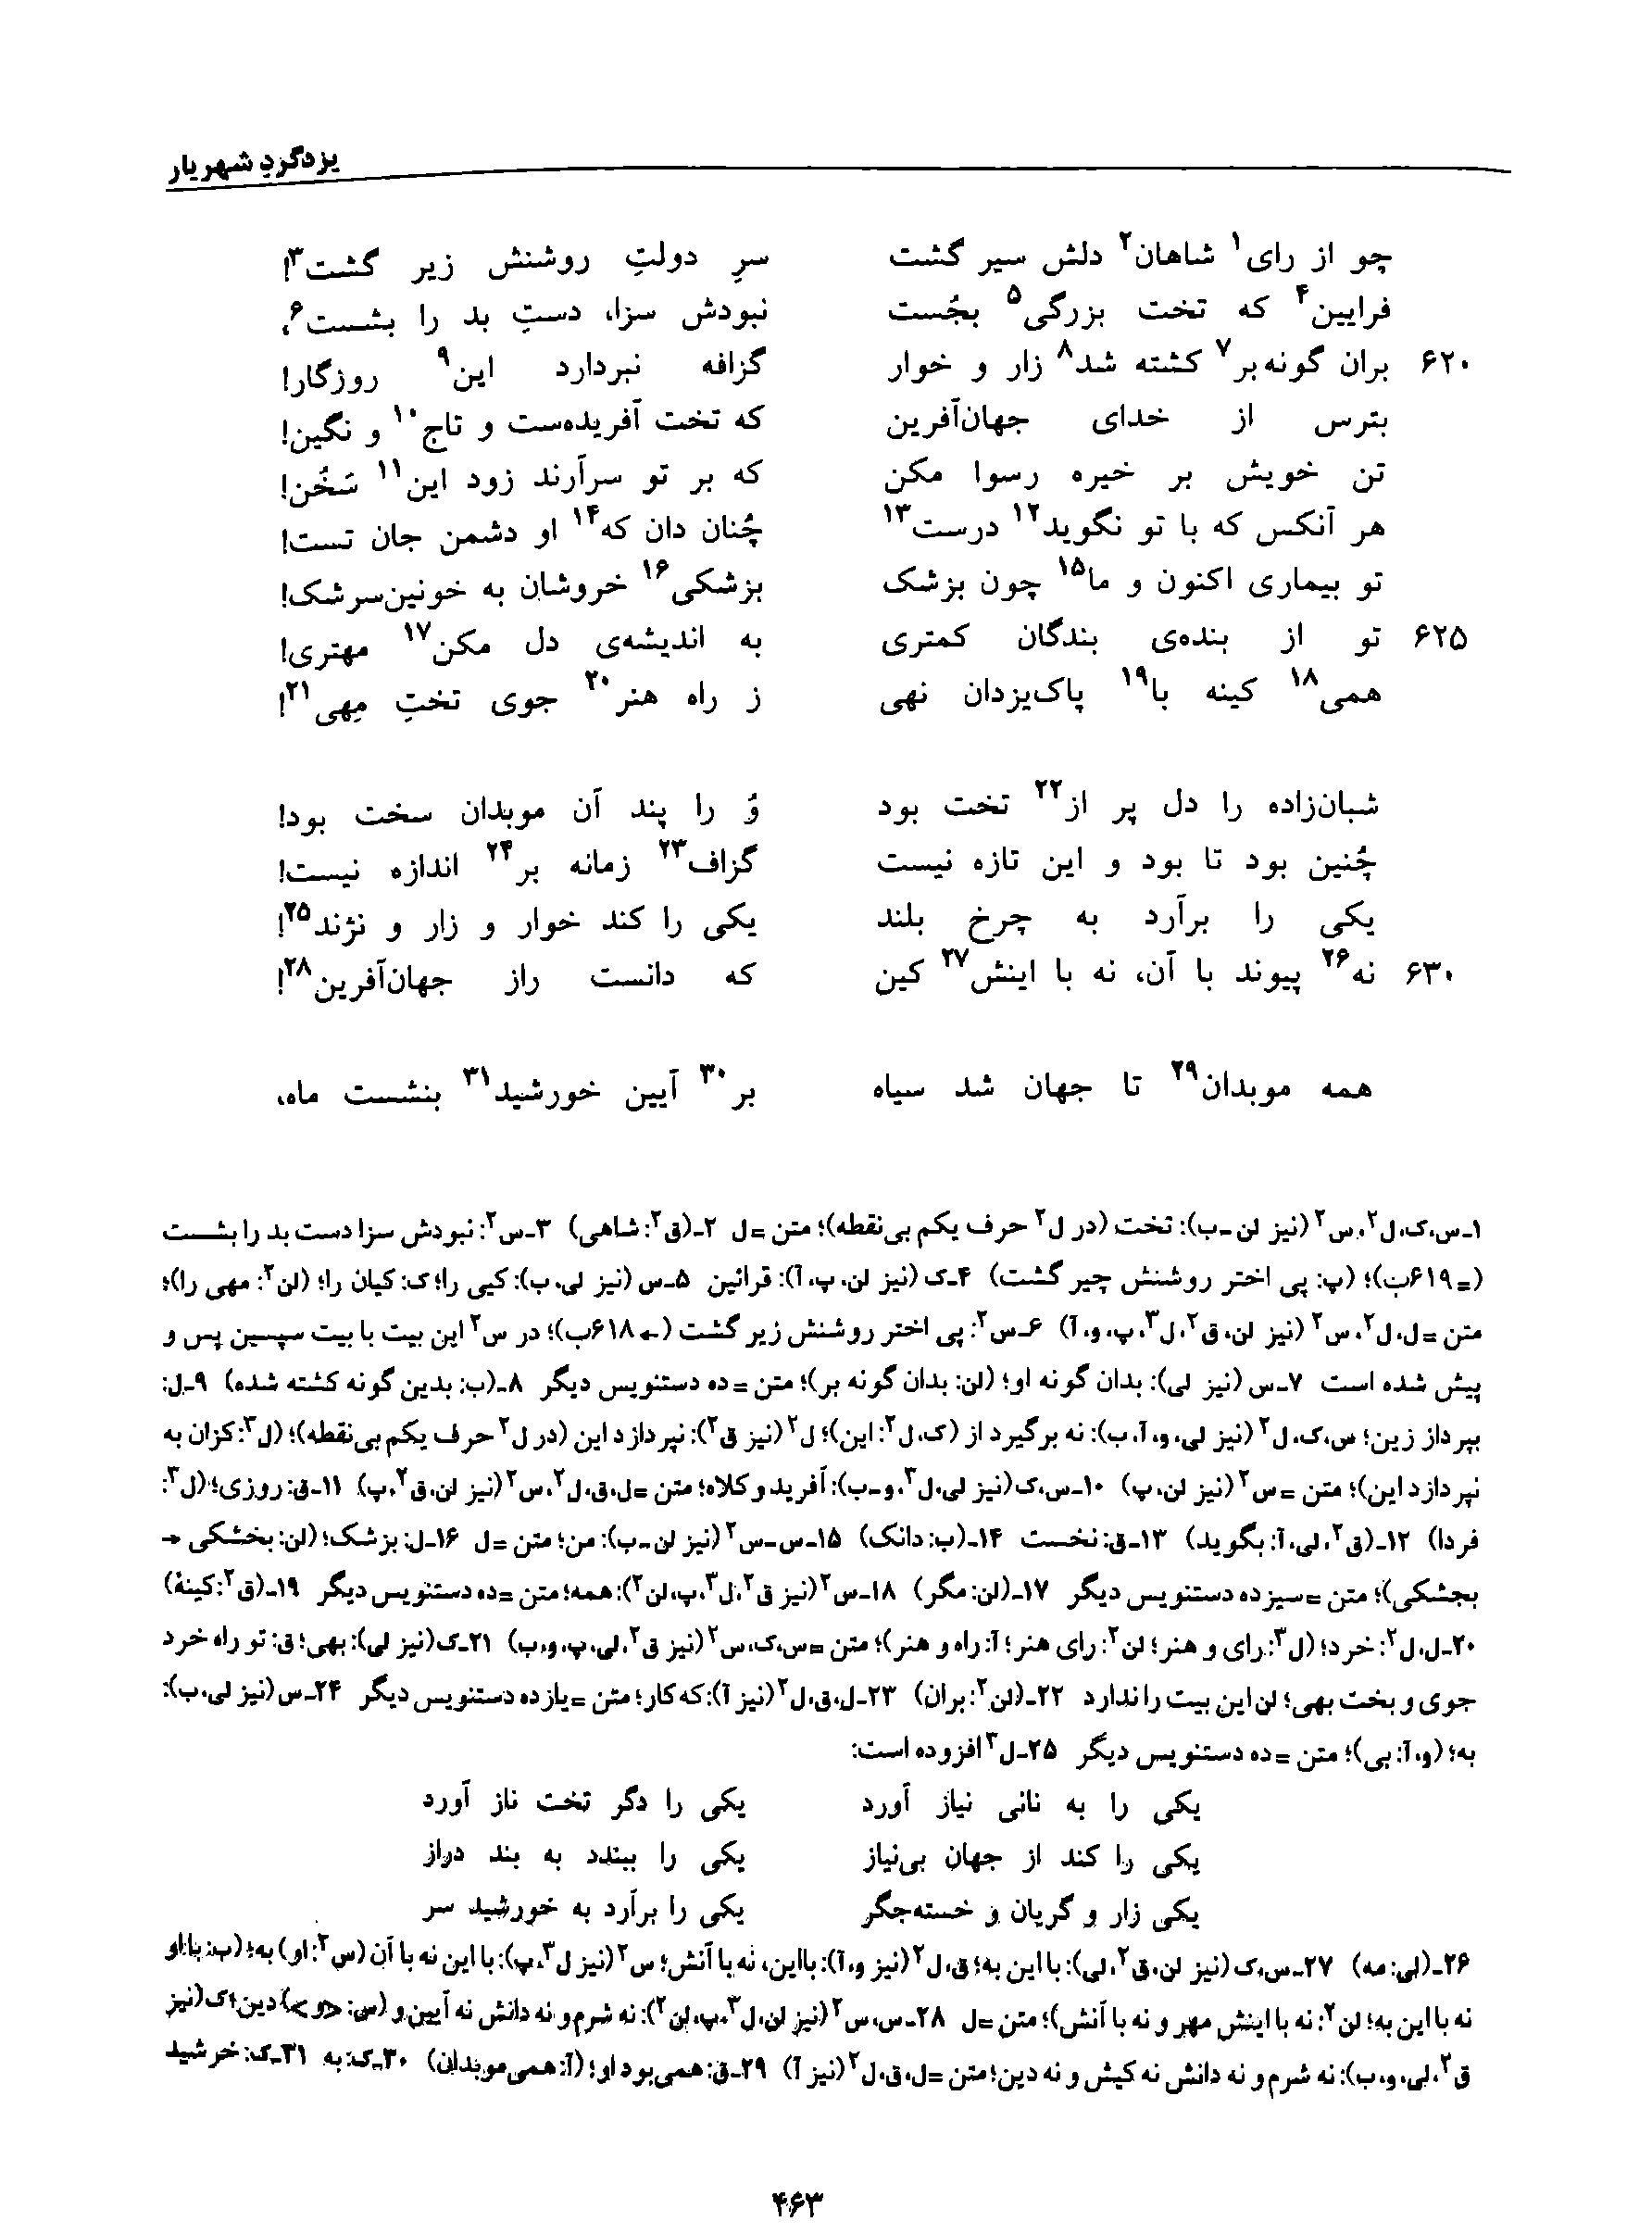 یزدگردِ شهریار
چو از رای۱ شاهان۲ دلش سیر گشت سرِ دولتِ روشنش زیر گشت۳!
فرایین۴ که تخت بزرگی۵ بجُست نبودش سزا، دستِ بد را بشست۶،
۶۲۰ بران گونه‌بر۷ کشته شد۸ زار و خوار گزافه نبردارد این۹ روزگار!
بترس از خدای جهان‌آفرین که تخت آفریده‌ست و تاج۱۰ و نگین!
تن خویش بر خیره رسوا مکن که بر تو سرآرند زود این۱۱ سَخُن!
هر آنکس که با تو نگوید۱۲ درست۱۳ چُنان دان که۱۴ او دشمن جان تست!
تو بیماری اکنون و ما۱۵ چون بزشک بزشکی۱۶ خروشان به خونین‌سرشک!
۶۲۵ تو از بنده‌ی بندگان کمتری به اندیشه‌ی دل مکن۱۷ مهتری!
همی۱۸ کینه با۱۹ پاک‌یزدان نهی ز راه هنر۲۰ جوی تختِ مِهی۲۱!
شبان‌زاده را دل پر از۲۲ تخت بود وُ را پند آن موبدان سخت بود!
چُنین بود تا بود و این تازه نیست گزاف۲۳ زمانه بر۲۴ اندازه نیست!
یکی را برآرد به چرخ بلند یکی را کند خوار و زار و نژند۲۵!
۶۳۰ نه۲۶ پیوند با آن، نه با اینش۲۷ کین که دانست راز جهان‌آفرین۲۸!
همه موبدان۲۹ تا جهان شد سیاه بر۳۰ آیین خورشید۳۱ بنشست ماه،
۱ـ س، ک، ل۲، س۲ (نیز لن ـ ب): تخت (در ل۲ حرف یکم بی‌نقطه)؛ متن = ل ۲ـ (ق۲: شاهی) ۳ـ س۲: نبودش سزا دست بد را بشست
(= ۶۱۹ب)؛ (پ: پی اختر روشنش چیر گشت) ۴ـ ک (نیز لن، پ، آ): قرائین ۵ـ س (نیز لی، ب): کیی را؛ ک: کیان را؛ (لن۲: مهی را)؛
متن = ل، ل۲، س۲ (نیز لن، ق۲، ل۳، پ، و، آ) ۶ـ س۲: پی اختر روشنش زیر گشت (← ۶۱۸ب)؛ در س۲ این بیت با بیت سپسین پس و
پیش شده است ۷ـ س (نیز لی): بدان گونه او؛ (لن: بدان گونه بر)؛ متن = ده دستنویس دیگر ۸ـ (ب: بدین گونه کشته شده) ۹ـ ل:
بپرداز زین؛ س، ک، ل۲ (نیز لی، و، آ، ب): نه برگیرد از (ک، ل۲: این)؛ ل۲ (نیز ق۲): نپردازد این (در ل۲ حرف یکم بی‌نقطه)؛ (ل۳: کزان به
نپردازد این)؛ متن = س۲ (نیز لن، پ) ۱۰ـ س، ک (نیز لی، ل۳، و ـ ب): آفرید و کلاه؛ متن = ل، ق، ل۲، س۲ (نیز لن، ق۲، پ) ۱۱ـ ق: روزی؛ (ل۳:
فردا) ۱۲ـ (ق۲، لی، آ: بگوید) ۱۳ـ ق: نخست ۱۴ـ (ب: دانک) ۱۵ـ س ـ س۲ (نیز لن ـ ب): من؛ متن = ل ۱۶ـ ل: بزشک؛ (لن: بخشکی →
بجشکی)؛ متن = سیزده دستنویس دیگر ۱۷ـ (لن: مگر) ۱۸ـ س۲ (نیز ق۲، ل۳، پ، لن۲): همه؛ متن = ده دستنویس دیگر ۱۹ـ (ق۲: کینهٔ)
۲۰ـ ل، ل۲: خرد؛ (ل۳: رای و هنر؛ لن۲: رای هنر؛ آ: راه و هنر)؛ متن = س، ک، س۲ (نیز ق۲، لی، پ، و، ب) ۲۱ـ ک (نیز لی): بهی؛ ق: تو راه خرد
جوی و بخت بهی؛ لن این بیت را ندارد ۲۲ـ (لن۲: بران) ۲۳ـ ل، ق، ل۲ (نیز آ): که کار؛ متن = یازده دستنویس دیگر ۲۴ـ س (نیز لی، ب):
به؛ (و، آ: بی)؛ متن = ده دستنویس دیگر ۲۵ـ ل۳ افزوده است:
یکی را به نانی نیاز آورد یکی را دگر تخت ناز آورد
یکی را کند از جهان بی‌نیاز یکی را ببندد به بند دراز
یکی زار و گریان و خسته‌جگر یکی را برآرد به خورشید سر
۲۶ـ (لی: مه) ۲۷ـ س، ک (نیز لن، ق۲، لی): با این به؛ ق، ل۲ (نیز و، آ): بااین، نه با آنش؛ س۲ (نیز ل۳، پ): با این نه با آن (س۲: او) به؛ (ب: با او
نه با این به؛ لن۲: نه با اینش مهر و نه با آنش)؛ متن = ل ۲۸ـ س، س۲ (نیز لن، ل۳، پ، لن۲): نه شرم و نه دانش نه آیین و (س: <و>) دین؛ ک (نیز
ق۲، لی، و، ب): نه شرم و نه دانش نه کیش و نه دین؛ متن = ل، ق، ل۲ (نیز آ) ۲۹ـ ق: همی بود او؛ (آ: همی موبدان) ۳۰ـ ک: به ۳۱ـ ک: خرشید
۴۶۳